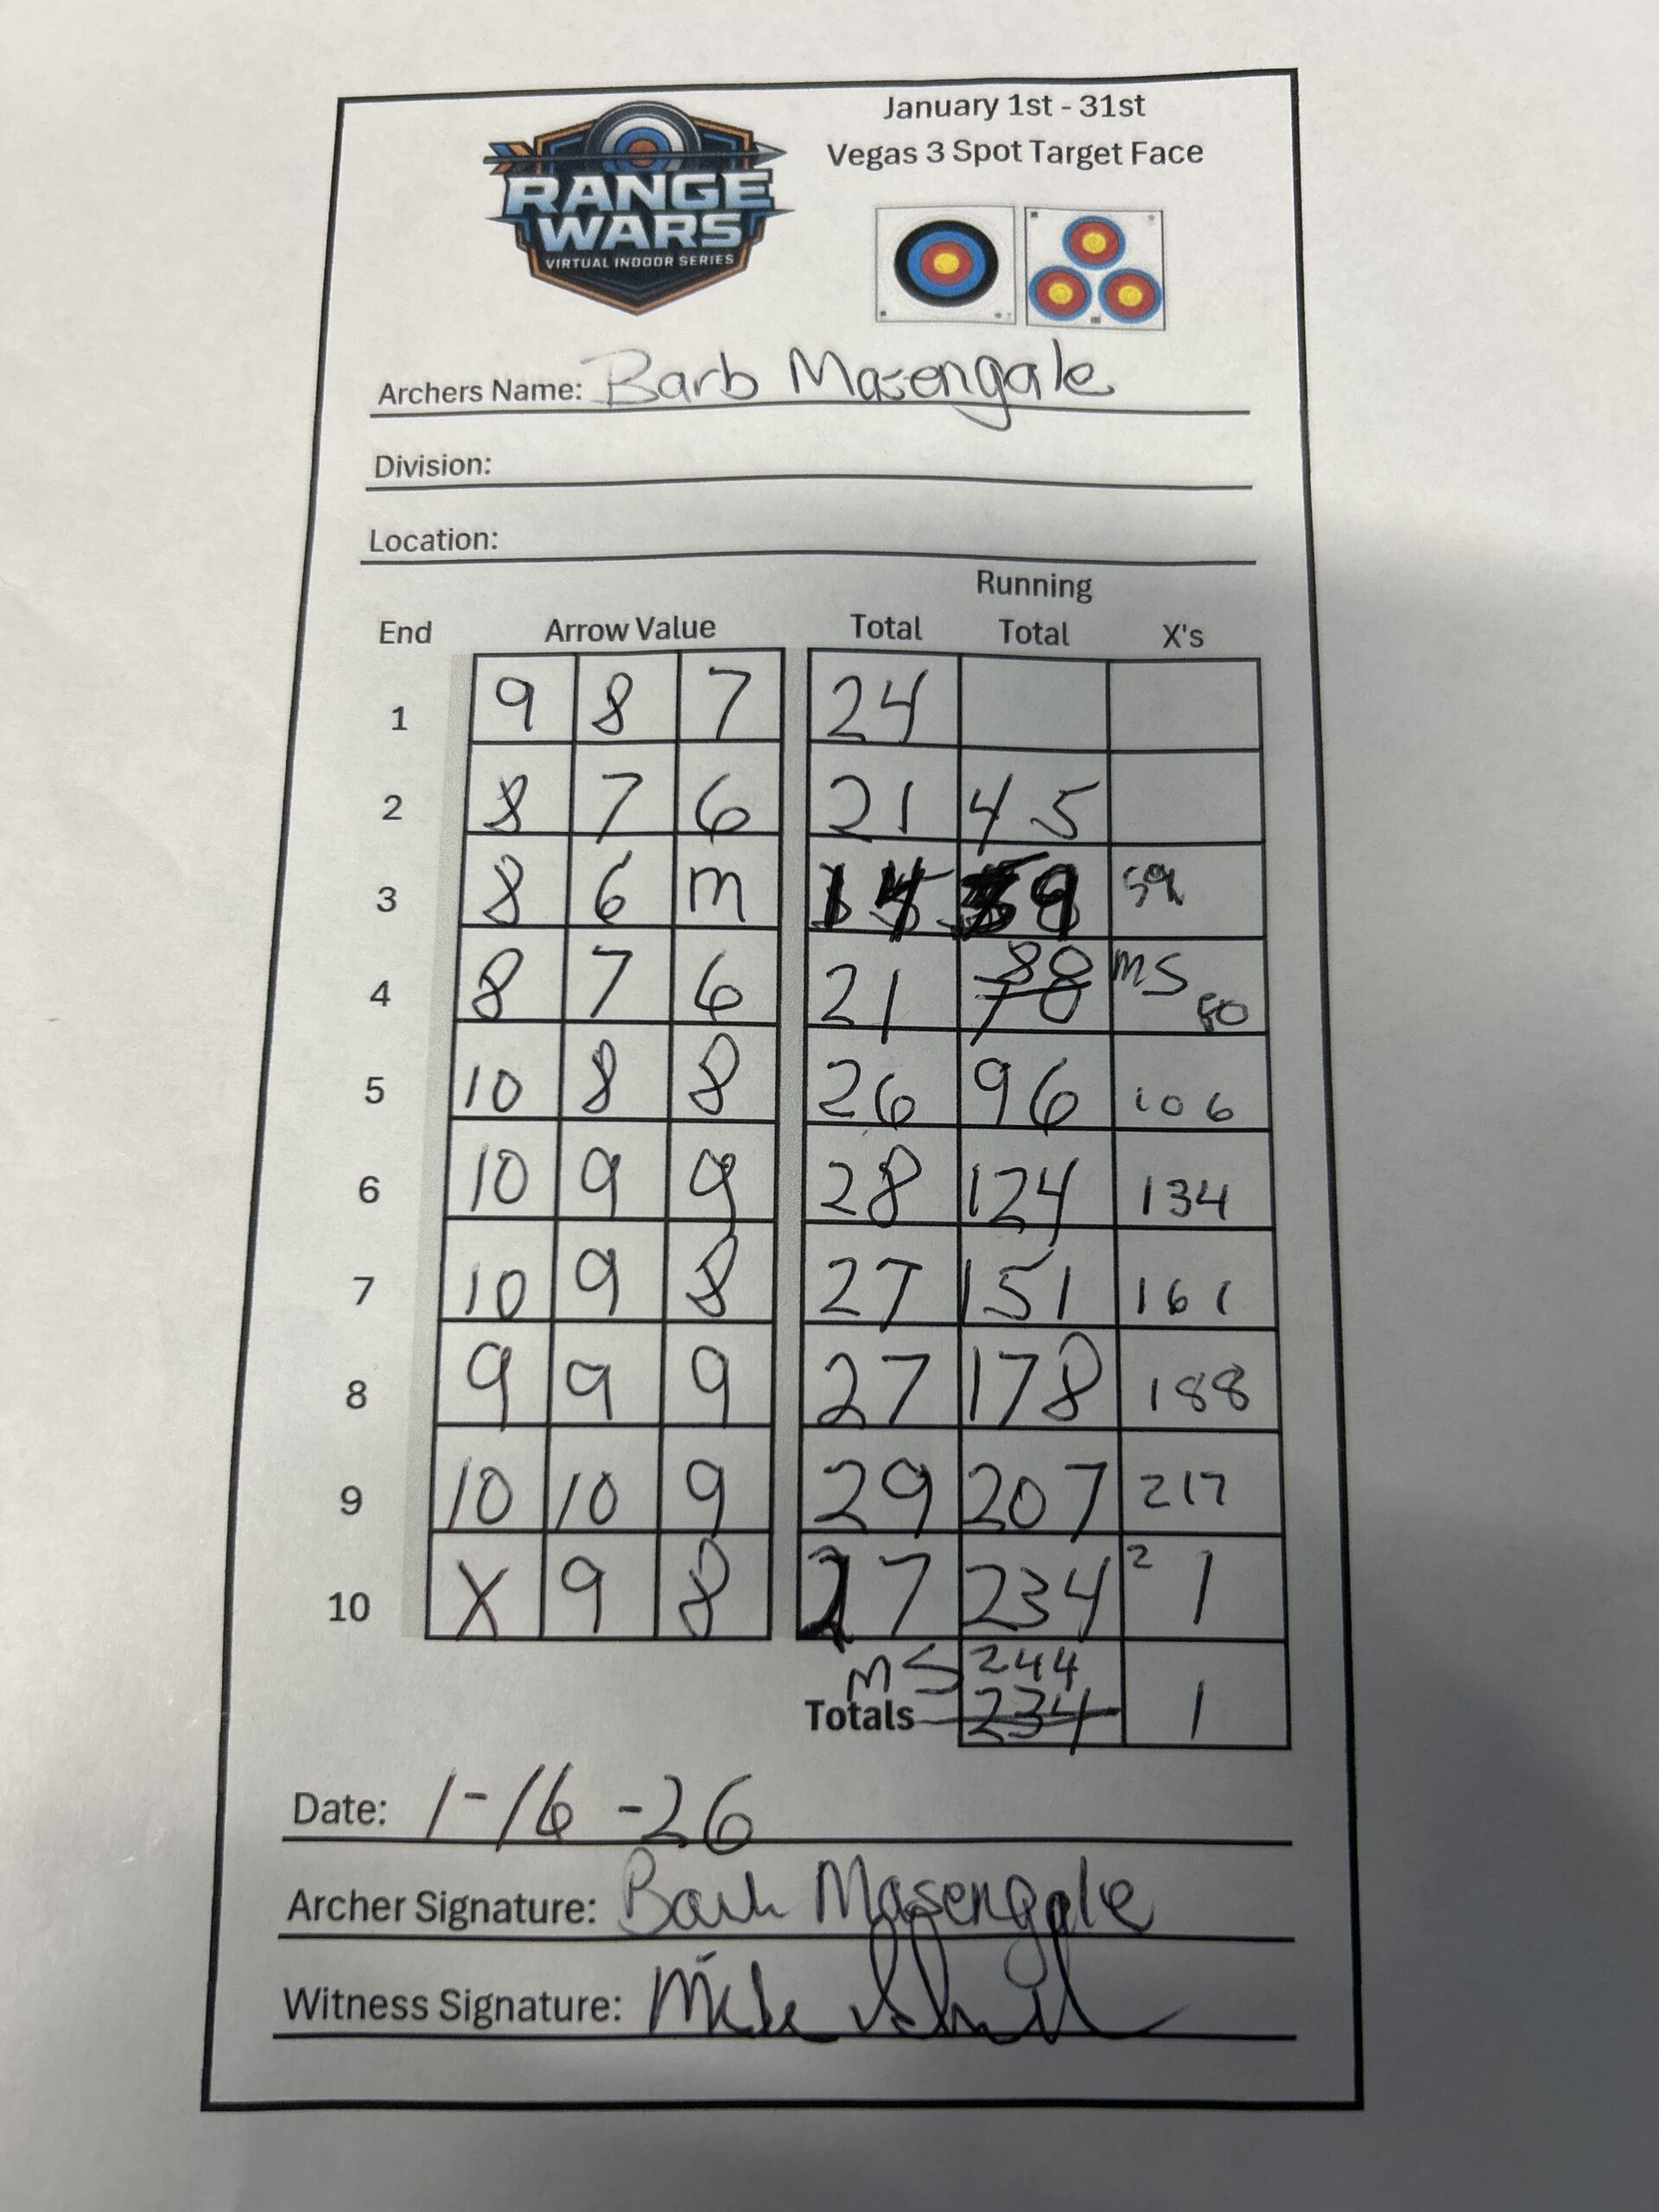 January 1st - 31st
Vegas 3 Spot Target Face
RANGE
WARS
VIRTUAL INDOOR SERIES
Archers Name: Barb Masengale
Division:
Location:
Running
End Arrow Value Total Total X's
1 9 8 7 24
2 8 7 6 21 45
3 8 6 m 14 59 59
4 8 7 6 21 88 78 MS 80
5 10 8 8 26 96 106
6 10 9 9 28 124 134
7 10 9 8 27 151 161
8 9 9 9 27 178 188
9 10 10 9 29 207 217
10 X 9 8 27 234 2 1
MS 244
Totals 234 1
Date: 1-16-26
Archer Signature: Barb Masengale
Witness Signature: Mike